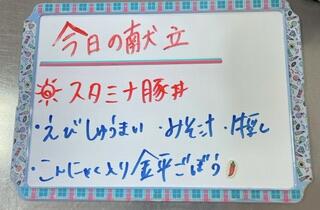 今日の献立
スタミナ豚丼
・えびしゅうまい ・みそ汁 ・煮干し
・こんにゃく入り金平ごぼう